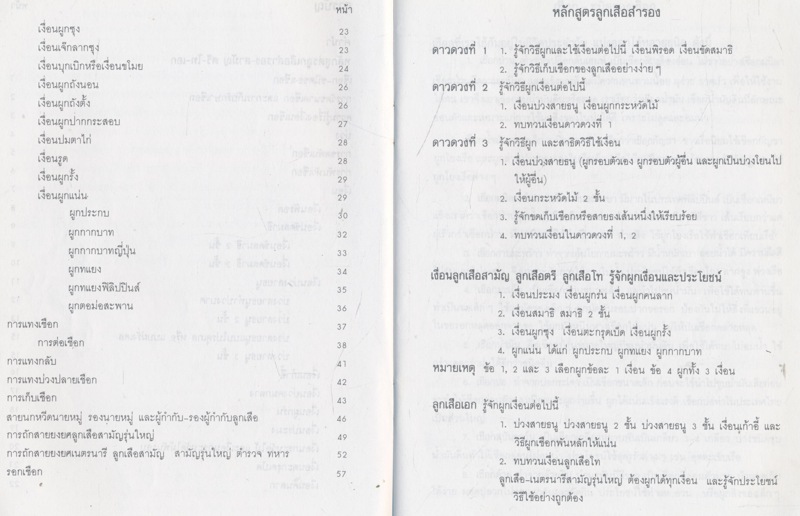 หน้า
เงื่อนผูกซุง 23
เงื่อนเจ๊กลากซุง 23
เงื่อนบุกเบิกหรือเงื่อนขโมย 24
เงื่อนผูกถังนอน 26
เงื่อนผูกถังตั้ง 26
เงื่อนผูกปากกระสอบ 27
เงื่อนปมตาไก่ 28
เงื่อนรูด 28
เงื่อนผูกรั้ง 29
เงื่อนผูกแน่น 29
ผูกประกบ 30
ผูกกากบาท 32
ผูกกากบาทญี่ปุ่น 33
ผูกทแยง 34
ผูกทแยงฟิลิปปินส์ 35
ผูกตอม่อสะพาน 36
การแทงเชือก 37
การต่อเชือก 38
การแทงกลับ 41
การแทงบ่วงปลายเชือก 42
การเก็บเชือก 43
สายนกหวีดนายหมู่ รองนายหมู่ และผู้กำกับ-รองผู้กำกับลูกเสือ 46
การถักสายยงยศลูกเสือสามัญรุ่นใหญ่ 49
การถักสายยงยศเนตรนารี ลูกเสือสามัญ สามัญรุ่นใหญ่ ตำรวจ ทหาร 52
รอกเชือก 57
หลักสูตรลูกเสือสำรอง
ดาวดวงที่ 1 1. รู้จักวิธีผูกและใช้เงื่อนต่อไปนี้ เงื่อนพิรอด เงื่อนขัดสมาธิ
2. รู้จักวิธีเก็บเชือกของลูกเสืออย่างง่าย ๆ
ดาวดวงที่ 2 รู้จักวิธีผูกเงื่อนต่อไปนี้
1. เงื่อนบ่วงสายธนู เงื่อนผูกกระหวัดไม้
2. ทบทวนเงื่อนดาวดวงที่ 1
ดาวดวงที่ 3 รู้จักวิธีผูก และสาธิตวิธีใช้เงื่อน
1. เงื่อนบ่วงสายธนู (ผูกรอบตัวเอง ผูกรอบตัวผู้อื่น และผูกเป็นบ่วงโยนไป
ให้ผู้อื่น)
2. เงื่อนกระหวัดไม้ 2 ชั้น
3. รู้จักขดเก็บเชือกหรือสายธงเส้นหนึ่งให้เรียบร้อย
4. ทบทวนเงื่อนในดาวดวงที่ 1, 2
เงื่อนลูกเสือสามัญ ลูกเสือตรี ลูกเสือโท รู้จักผูกเงื่อนและประโยชน์
1. เงื่อนประมง เงื่อนผูกร่น เงื่อนผูกคนลาก
2. เงื่อนสมาธิ สมาธิ 2 ชั้น
3. เงื่อนผูกซุง เงื่อนตะกรุดเบ็ด เงื่อนผูกรั้ง
4. ผูกแน่น ได้แก่ ผูกประกบ ผูกทแยง ผูกกากบาท
หมายเหตุ ข้อ 1, 2 และ 3 เลือกผูกข้อละ 1 เงื่อน ข้อ 4 ผูกทั้ง 3 เงื่อน
ลูกเสือเอก รู้จักผูกเงื่อนต่อไปนี้
1. บ่วงสายธนู บ่วงสายธนู 2 ชั้น บ่วงสายธนู 3 ชั้น เงื่อนเก้าอี้ และ
วิธีผูกเชือกพันหลักให้แน่น
2. ทบทวนเงื่อนลูกเสือโท
ลูกเสือ-เนตรนารีสามัญรุ่นใหญ่ ต้องผูกได้ทุกเงื่อน และรู้จักประโยชน์
วิธีใช้อย่างถูกต้อง